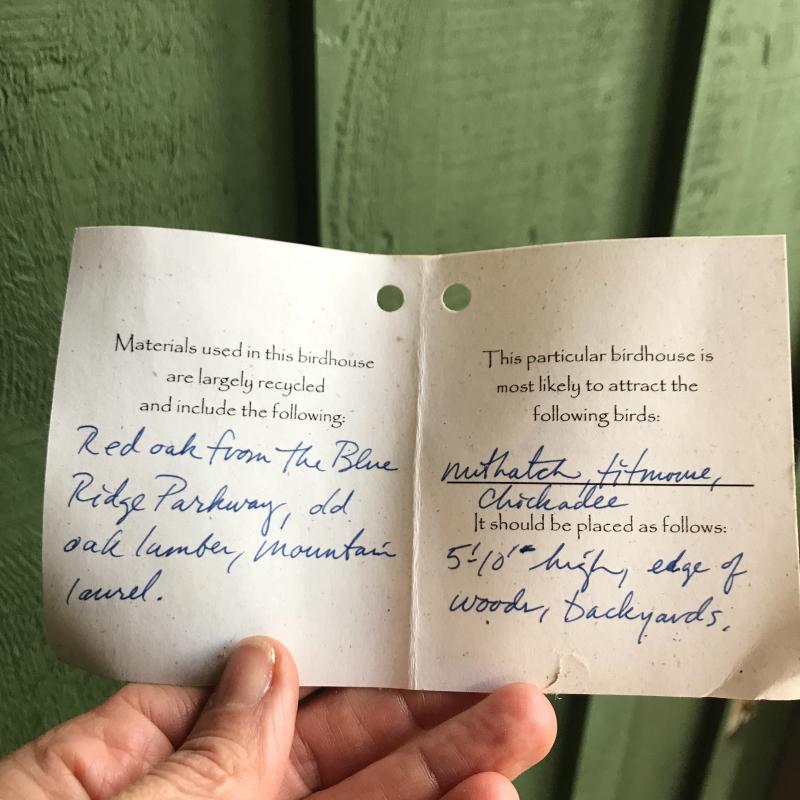 Materials used in this birdhouse
are largely recycled
and include the following:
Red oak from the Blue
Ridge Parkway, old
oak lumber, mountain
laurel.
This particular birdhouse is
most likely to attract the
following birds:
nuthatch, titmouse,
Chickadee
It should be placed as follows:
5'-10' high, edge of
woods, backyards.